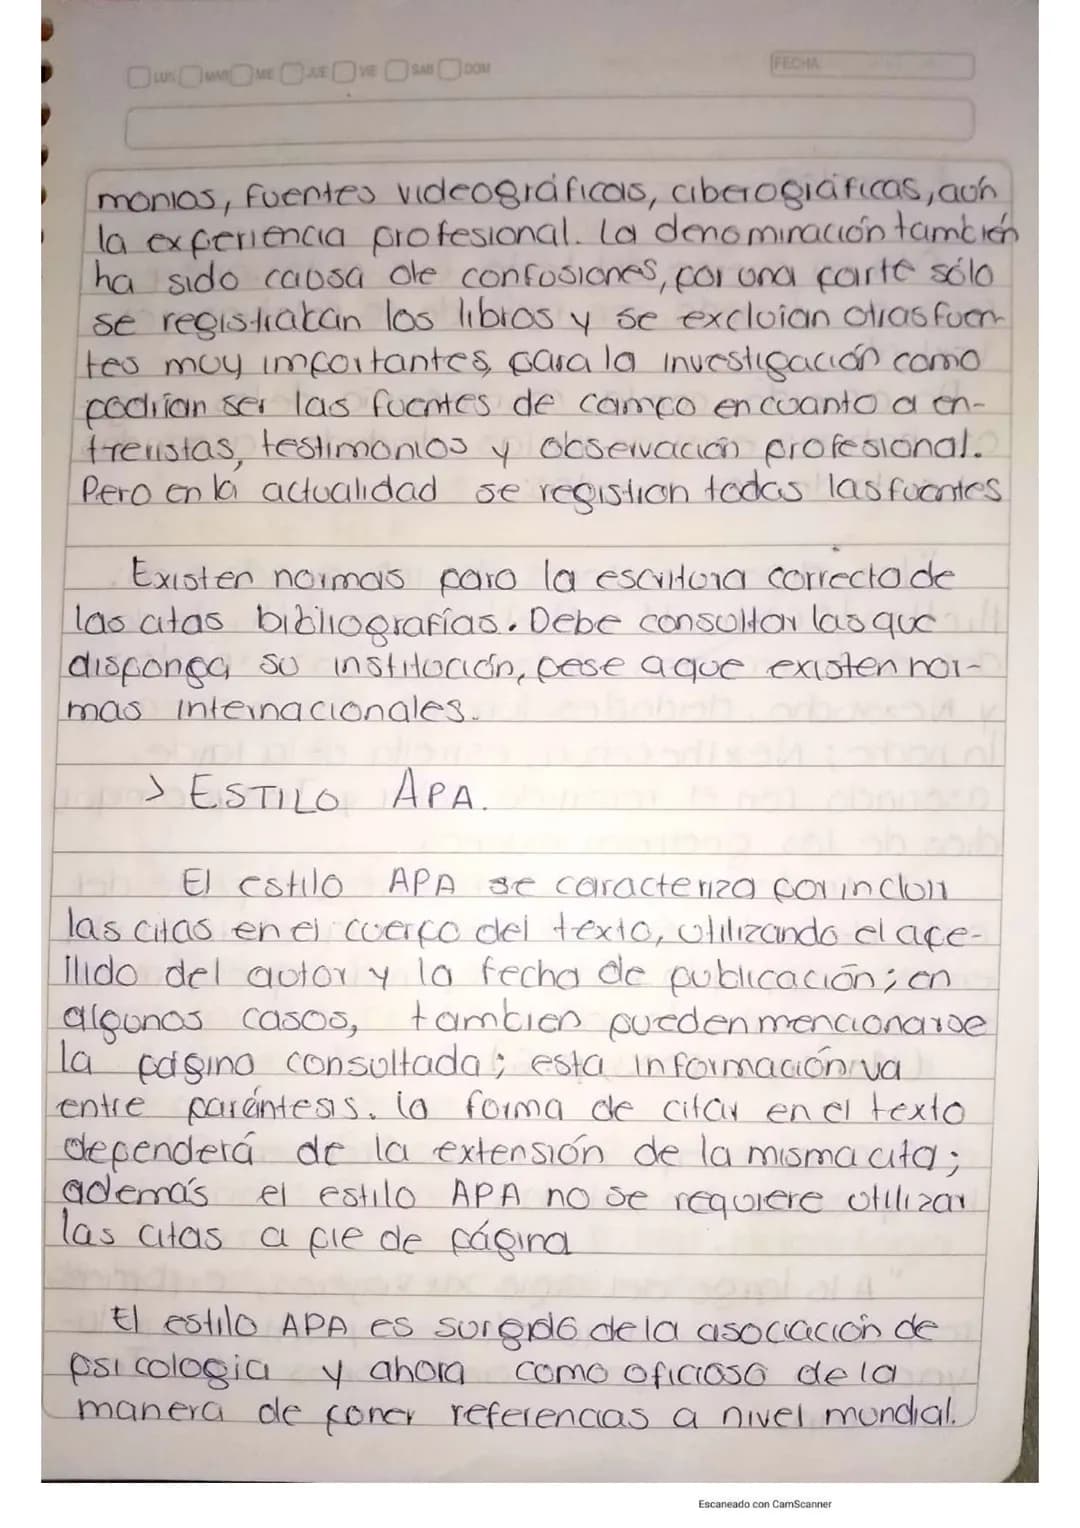 LUN MAR MIE JUE VIE SAB DOM
FECHA
monios, fuentes videográficas, ciberográficas, aún
la experiencia profesional. La denominación también
ha sido causa de confusiones, por una parte sólo
se registraban los libros y se excluían otras fuen-
tes muy importantes, para la investigación como
podrían ser las fuentes de campo en cuanto a en-
trevistas, testimonios y observación profesional.
Pero en la actualidad se registran todas las fuentes
Existen normas para la escritura correcta de
las citas bibliografías. Debe consultar las que
disponga su institución, pese a que existen nor-
mas internacionales.
> ESTILO APA.
El estilo APA se caracteriza por incluir
las citas en el cuerpo del texto, utilizando el ape-
llido del autor y la fecha de publicación; en
algunos casos, tambien pueden mencionarse
la página consultada; esta información va
entre paréntesis. la forma de citar en el texto
dependerá de la extensión de la misma cita;
además el estilo APA no se requiere utilizar
las citas a pie de página
El estilo APA es surgido de la asociación de
psicologia y ahora como oficioso de la
manera de poner referencias a nivel mundial.
Escaneado con CamScanner